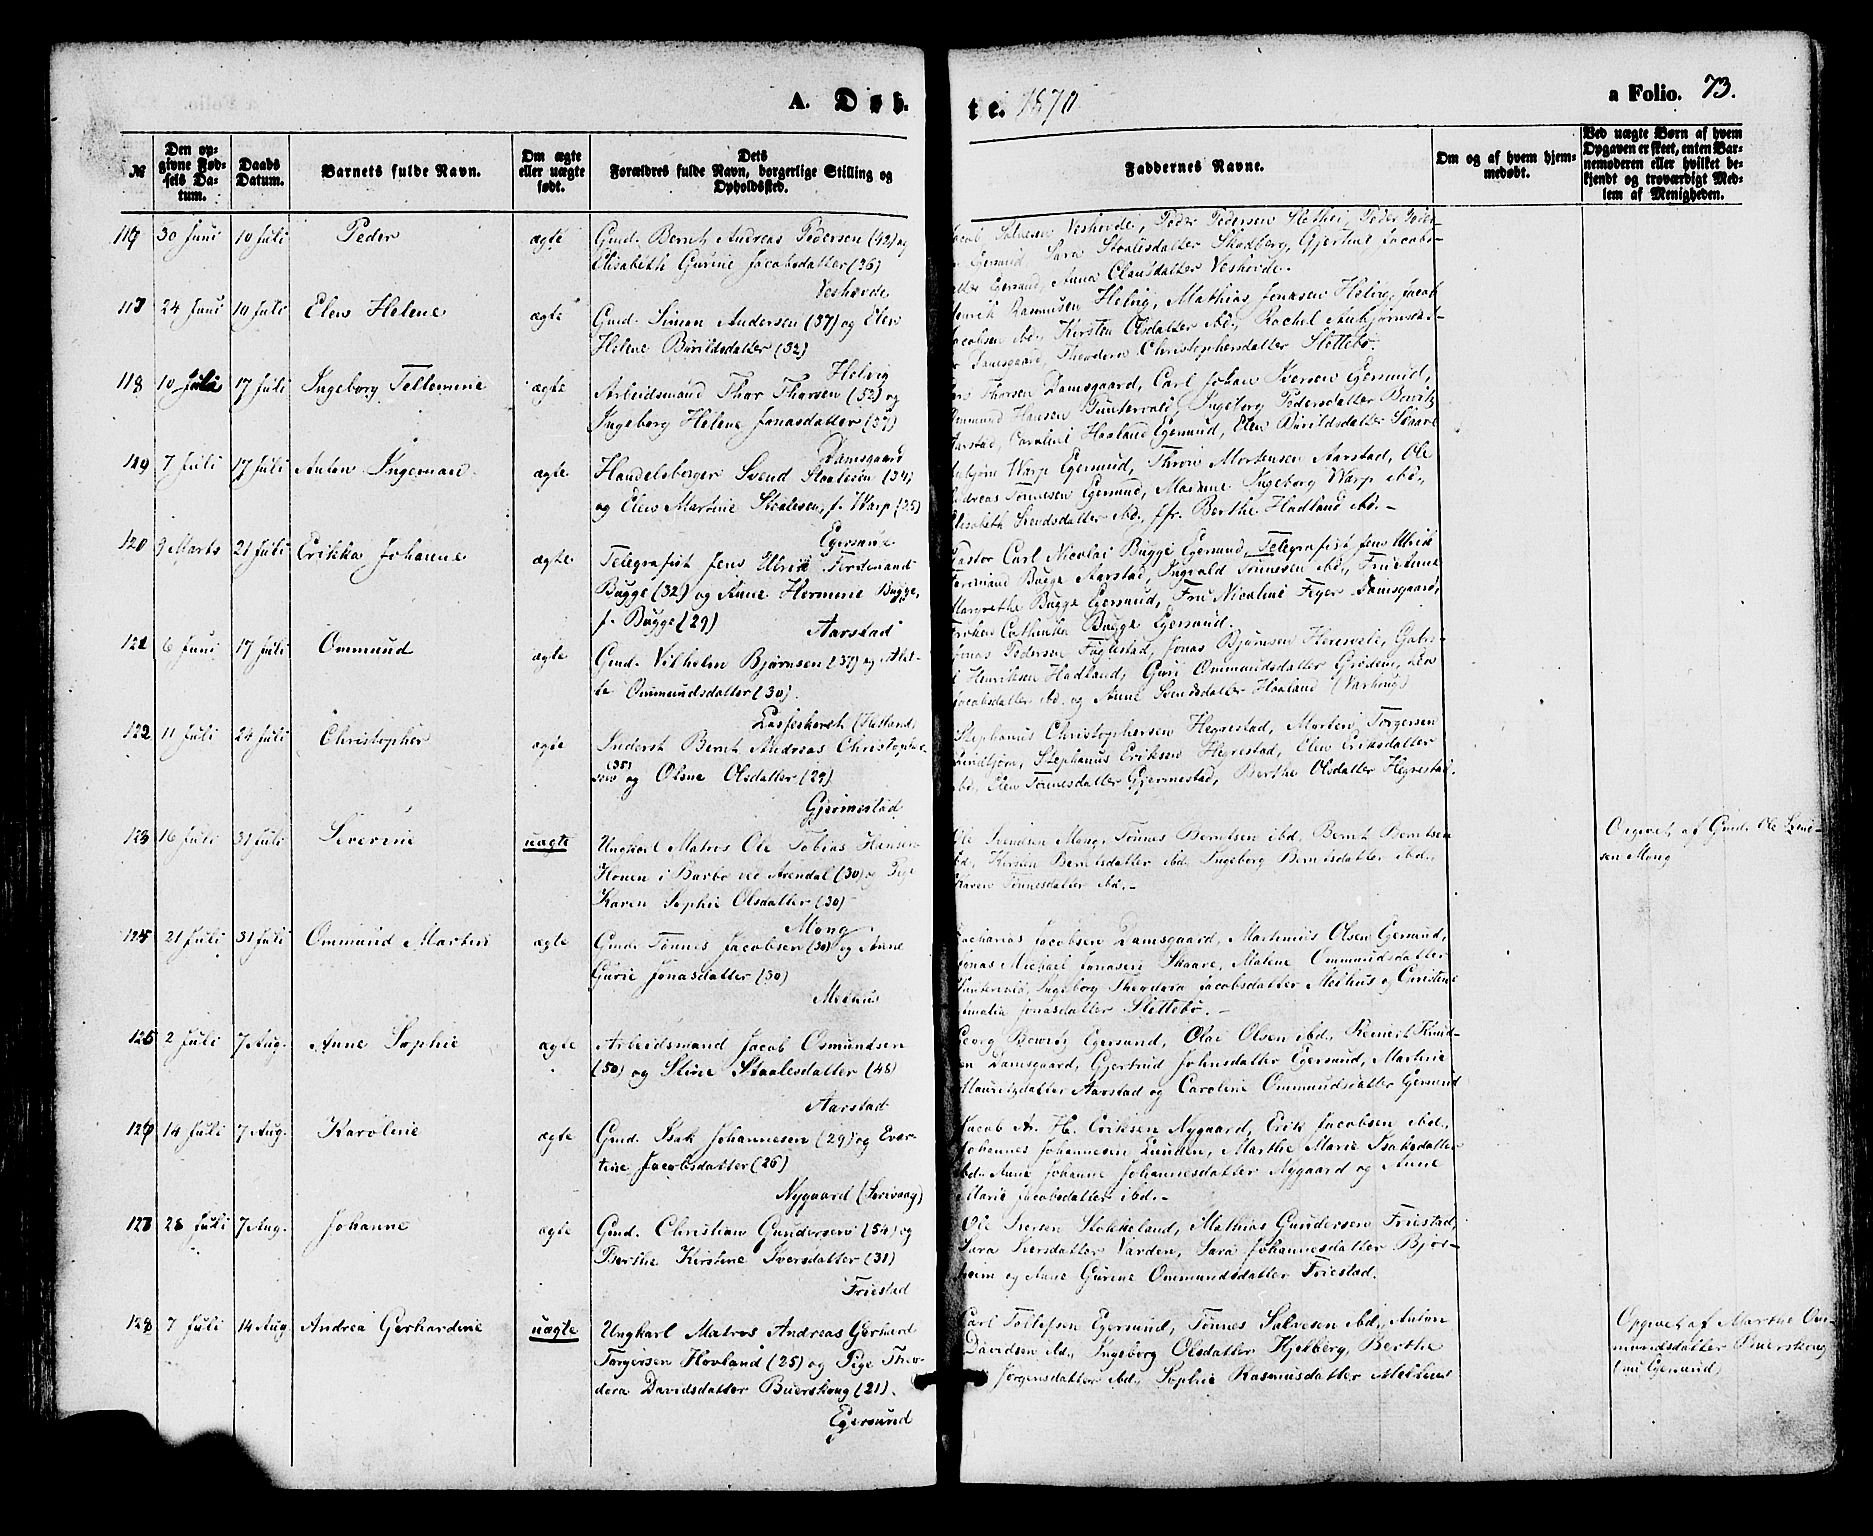 A. Døb-
te. 1870
a Folio. 73.
№
Den op-
givne Fød-
sels Da-
tum.
Daabs
Datum.
Barnets fulde Navn.
Om ægte
eller uægte
født.
Dets
Forældres fulde Navn, borgerlige Stilling og
Opholdssted.
Faddernes Navne.
Om og af hvem hjem-
medøbt.
Ved uægte Børn af hvem
Opgaven er skeet, enten Bar-
nemoderen eller hvilket be-
kjendt og troværdigt Med-
lem af Menigheden.
30 Juni 10 Juli Peder ægte
Gmd. Bernt Andreas Pedersen (42) og
Elisabeth Gurine Jacobsdatter (36)
Veshovde
Jacob Salvesen Veshovde, Peder Pedersen Slethei, Peder Peder-
Egersund, Sara Staalesdatter Skadberg, Gjertine Jacobs-
datter Egersund, Anna Clausdatter Veshovde.
117 24 Juni 10 Juli Elen Helene ægte
Gmd. Simon Andersen (37) og Elen
Helene Bürildsdatter (32)
Helvig
Henrik Rasmusen Helvig, Mathias Jonasen Helvig, Jacob
Jacobsen ibd., Kirsten Olsdatter ibd., Rachel Aubjørnsdat-
Damsgaard, Theodora Christophersdatter Slettebø.
118 10 Juli 17 Juli Ingeborg Tellemine ægte
Arbeidsmand Thor Thorsen (52) og
Ingeborg Helene Jonasdatter (37)
Damsgaard
Thorsen Damsgaard, Carl Johan Iversen Egersund,
Ommund Hansen Puntervold, Ingeborg Pedersdatter
Aarstad, Caroline Haaland Egersund, Elen Bürildsdatter Skaare
119 7 Juli 17 Juli Anton Ingeman ægte
Handelsborger Svend Staalesen (34)
og Elen Martine Staalesen, f. Warp (25)
Egersund
Aubjørn Warp Egersund, Thron Mortensen Aarstad, Ole
Andreas Tønnesen Egersund, Madame Ingeborg Warp ibd.,
Elisabeth Svendsdatter ibd., Jfr. Berthe Hadland ibd. -
120 9 Marts 21 Juli Erikka Johanne ægte
Telegrafist Jens Ulrik Ferdinand
Bugge (32) og Anne Hermine Bugge,
f. Bugge (29)
Aarstad
Pastor Carl Nicolai Bugge Egersund, Telegrafist Jens Ulrik
Ferdinand Bugge Aarstad, Ingvald Tønnesen ibd., Frue Anne
Margrethe Bugge Egersund, Fru Nicoline Feyer Damsgaard,
Frøken Cathinka Bugge Egersund.
121 6 Juni 17 Juli Ommund ægte
Gmd. Vilhelm Bjørnsen (37) og Alet-
te Ommundsdatter (30).
Jonas Pedersen Fuglestad, Jonas Bjørnsen Heresvele, Gabri-
el Henriksen Hadland, Guri Ommundsdatter Grødem,
Jacobsdatter ibd. og Anne Svendsdatter Haaland (Varhoug)
122 11 Juli 24 Juli Christopher ægte
Inderst Bernt Andreas Christopher-
sen (35) og Olene Olsdatter (29)
Gjermestad
Stephanus Christophersen Hegrestad, Morten Torgersen
Lindtjørn, Stephanus Eriksen Hegrestad, Elen Eriksdatter
ibd., Elen Tønnesdatter Gjermestad, Berthe Olsdatter Hegrestad.
123 16 Juli 31 Juli Severine uægte
Ungkarl Matros Ole Tobias Hansen
Houen i Barbo ved Arendal (30) og Pige
Karen Sophie Olsdatter (30)
Mong
Ole Svendsen Mong, Tønnes Berntsen ibd., Bernt Berntsen
ibd., Kirsten Berntsdatter ibd., Ingeborg Berntsdatter ibd.,
Karen Tønnesdatter ibd. -
Opgivet af Gmd. Ole Svend-
sen Mong
21 Juli 31 Juli Ommund Martin ægte
Gmd. Tønnes Jacobsen (30) og Anne
Gurie Jonasdatter (30)
Melhus
Zacharias Jacobsen Damsgaard, Martinius Olsen Egersund,
Jonas Michael Jonasen Skaare, Malene Ommundsdatter
Puntervold, Ingeborg Theodora Jacobsdatter Melhus og Christine
Amalia Jonasdatter Slettebø. -
125 2 Juli 7 Aug. Anne Sophie ægte
Arbeidsmand Jacob Osmundsen
(50) og Stine Staalesdatter (46)
Aarstad
Georg Egersund, Olai Olsen ibd., Reinert Knud-
sen Damsgaard, Gjertrud Johnsdatter Egersund, Martine
Mauritzdatter Aarstad og Caroline Ommundsdatter Egersund
126 14 Juli 7 Aug. Karoline ægte
Gmd. Isak Johannesen (29) og Ever-
tine Jacobsdatter (26)
Nygaard
Jacob A. H. Eriksen Nygaard, Erik Jacobsen ibd.,
Johannes Johannesen Lunden, Marthe Marie Isaksdatter
ibd., Anne Johanne Johannesdatter Nygaard og Anne
Marie Jacobsdatter ibd. -
127 28 Juli 7 Aug. Johanne ægte
Gmd. Christian Gundersen (54) og
Berthe Kirstine Iversdatter (31)
Friestad
Ole Iversen Stokkeland, Mathias Gundersen Friestad,
Sara Iversdatter Varden, Sara Johannesdatter Bjør-
heim og Anne Gurine Ommundsdatter Friestad.
128 7 Juli 14 Aug Andrea Gerhardine uægte
Ungkarl Matros Andreas Gerhard
Torgersen Hovland (25) og Pige Theo-
dora Davidsdatter Buerskoug (21).
Egersund
Carl Tollefsen Egersund, Tønnes Salvesen ibd., Anton
Davidsen ibd., Ingeborg Olsdatter Hjelberg, Berthe
Jørgensdatter ibd., Sophie Rasmusdatter Melhus
Opgivet af Marthe Om-
mundsdatter Buerskoug
Egersund